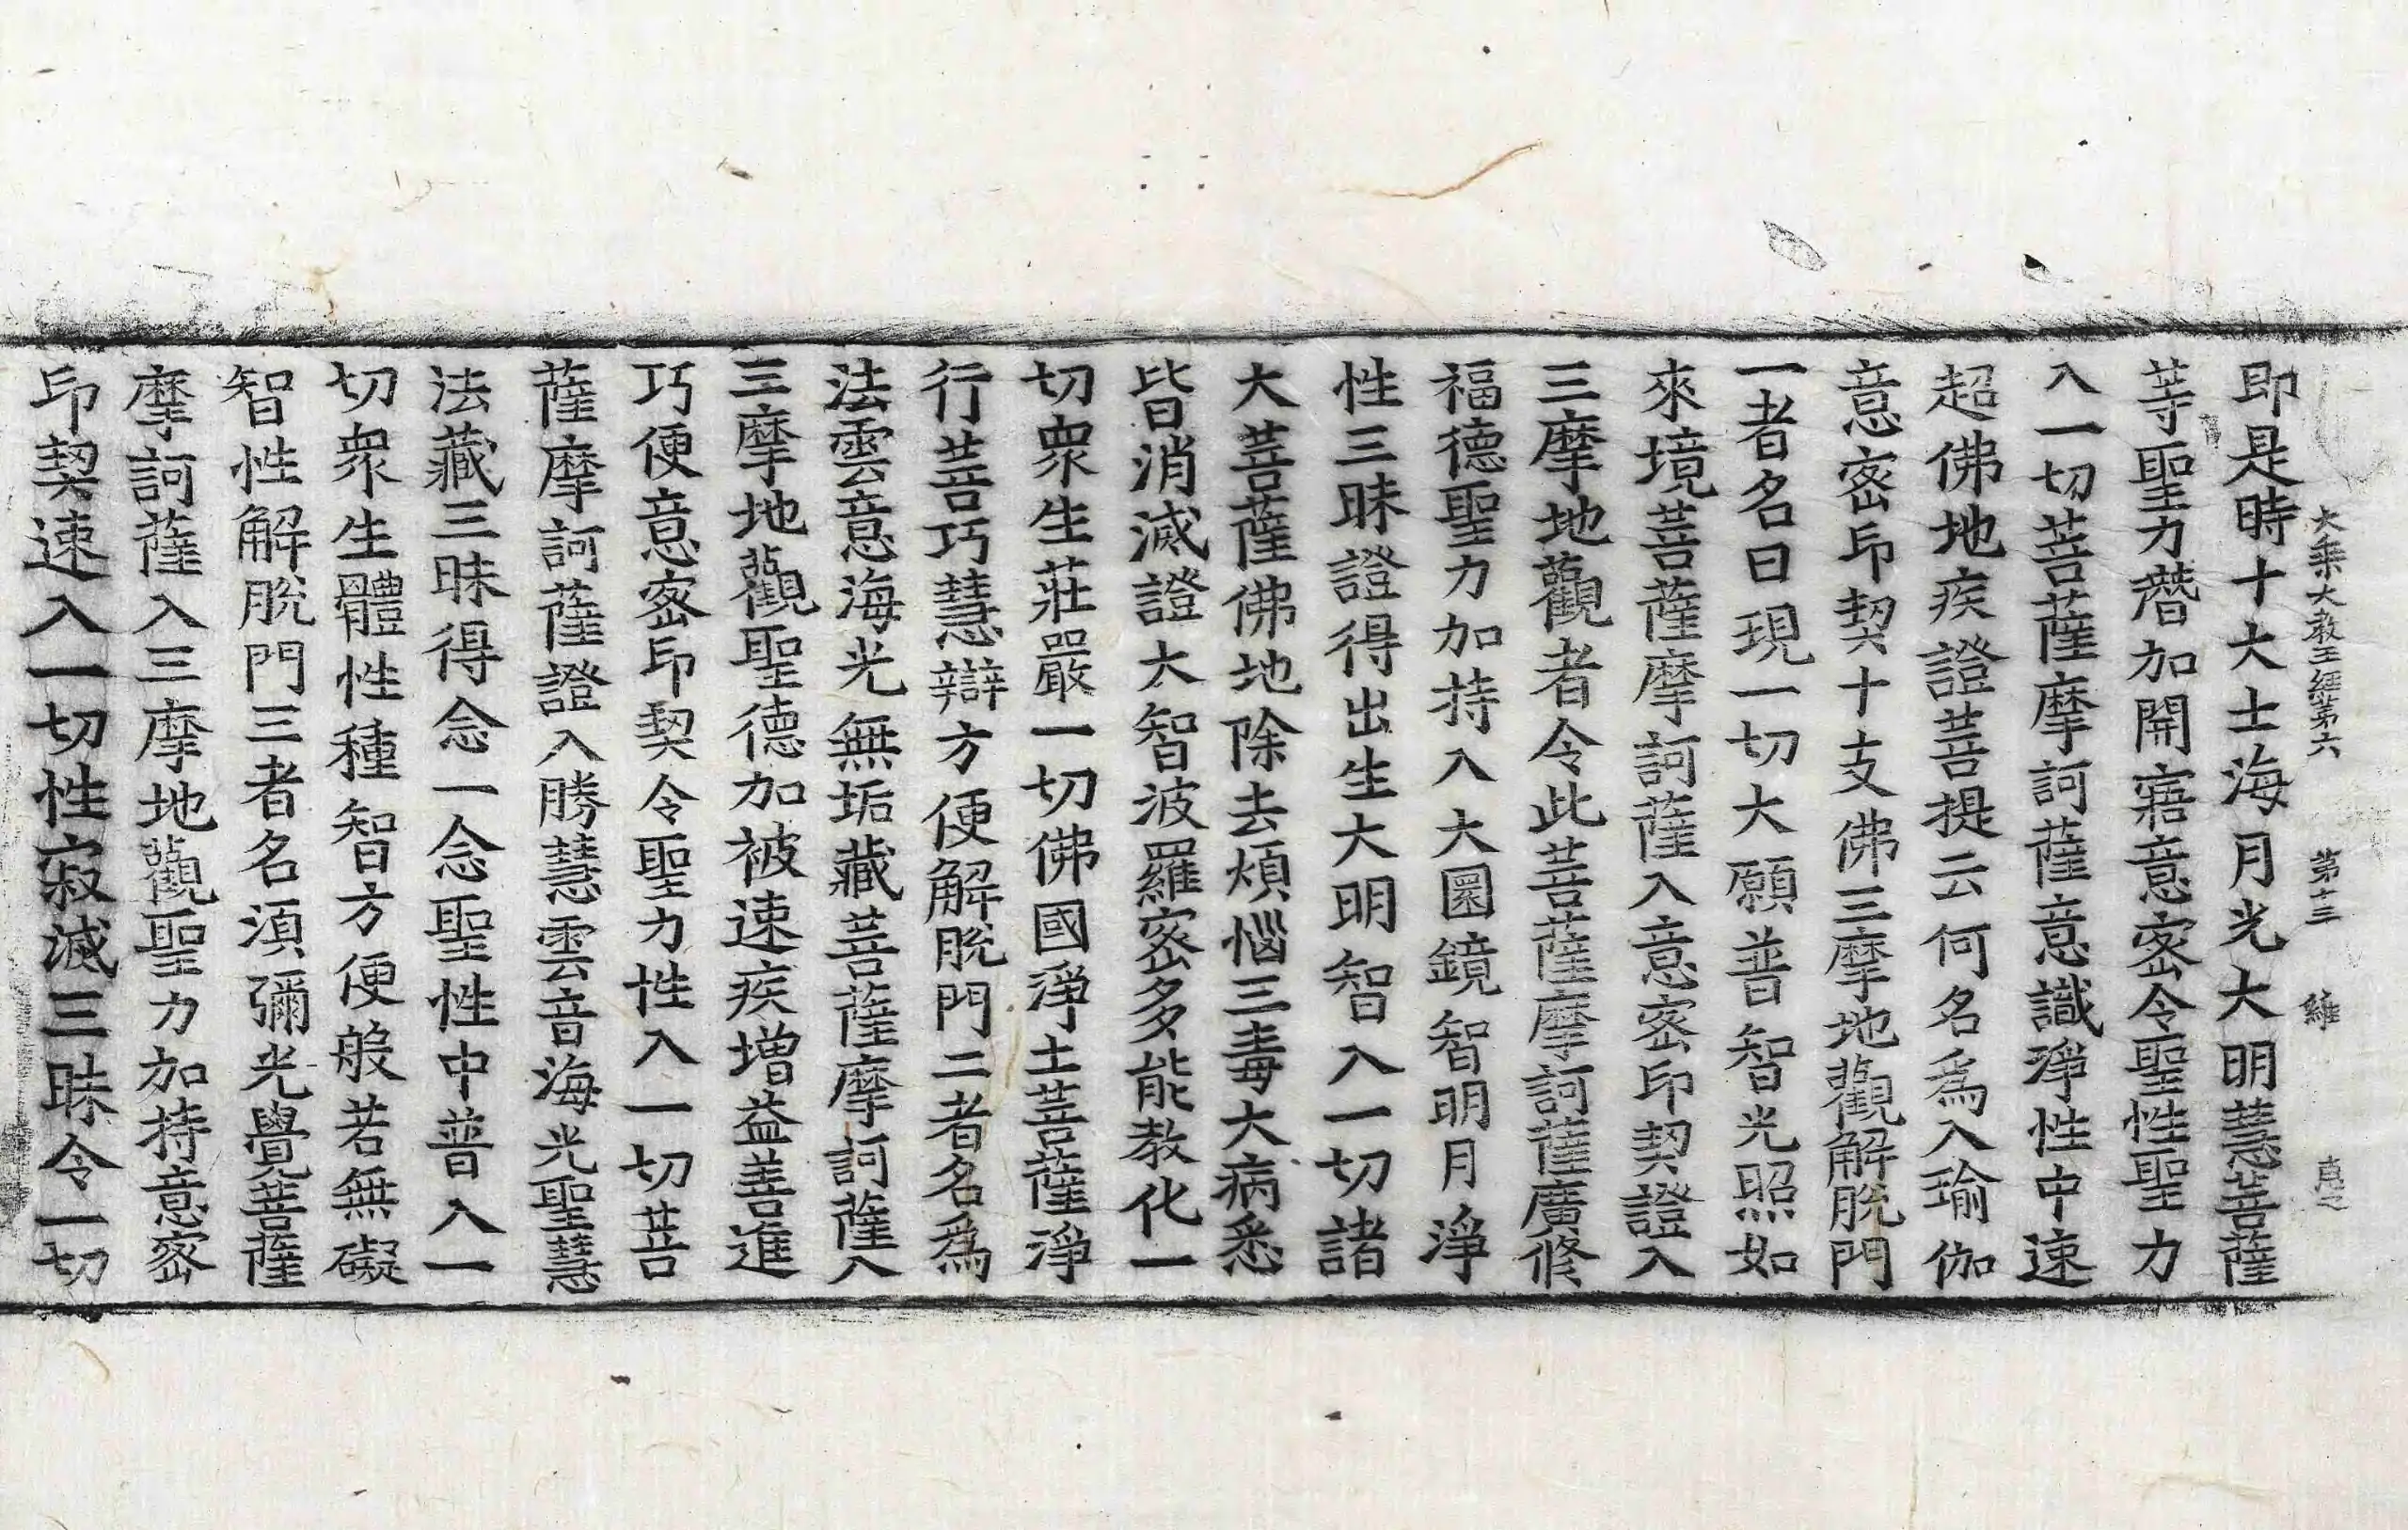 大乘大教王經第六　第十三　維
即是時十大士海月光大明慧菩薩
等聖力潛加開寤意密令聖性聖力
入一切菩薩摩訶薩意識淨性中速
超佛地疾證菩提云何名爲入瑜伽
意密印契十支佛三摩地觀解脫門
一者名曰現一切大願普智光照如
來境菩薩摩訶薩入意密印契證入
三摩地觀者令此菩薩摩訶薩廣修
福德聖力加持入大圓鏡智明月淨
性三昧證得出生大明智入一切諸
大菩薩佛地除去煩惱三毒大病悉
皆消滅證大智波羅密多能教化一
切衆生莊嚴一切佛國淨土菩薩淨
行菩巧慧辯方便解脫門二者名爲
法雲意海光無垢藏菩薩摩訶薩入
三摩地觀聖德加被速疾增益善進
巧便意密印契令聖力性入一切菩
薩摩訶薩證入勝慧雲音海光聖慧
法藏三昧得念一念聖性中普入一
切衆生體性種智方便般若無礙
智性解脫門三者名須彌光覺菩薩
摩訶薩入三摩地觀聖力加持意密
印契速入一切性寂滅三昧令一切